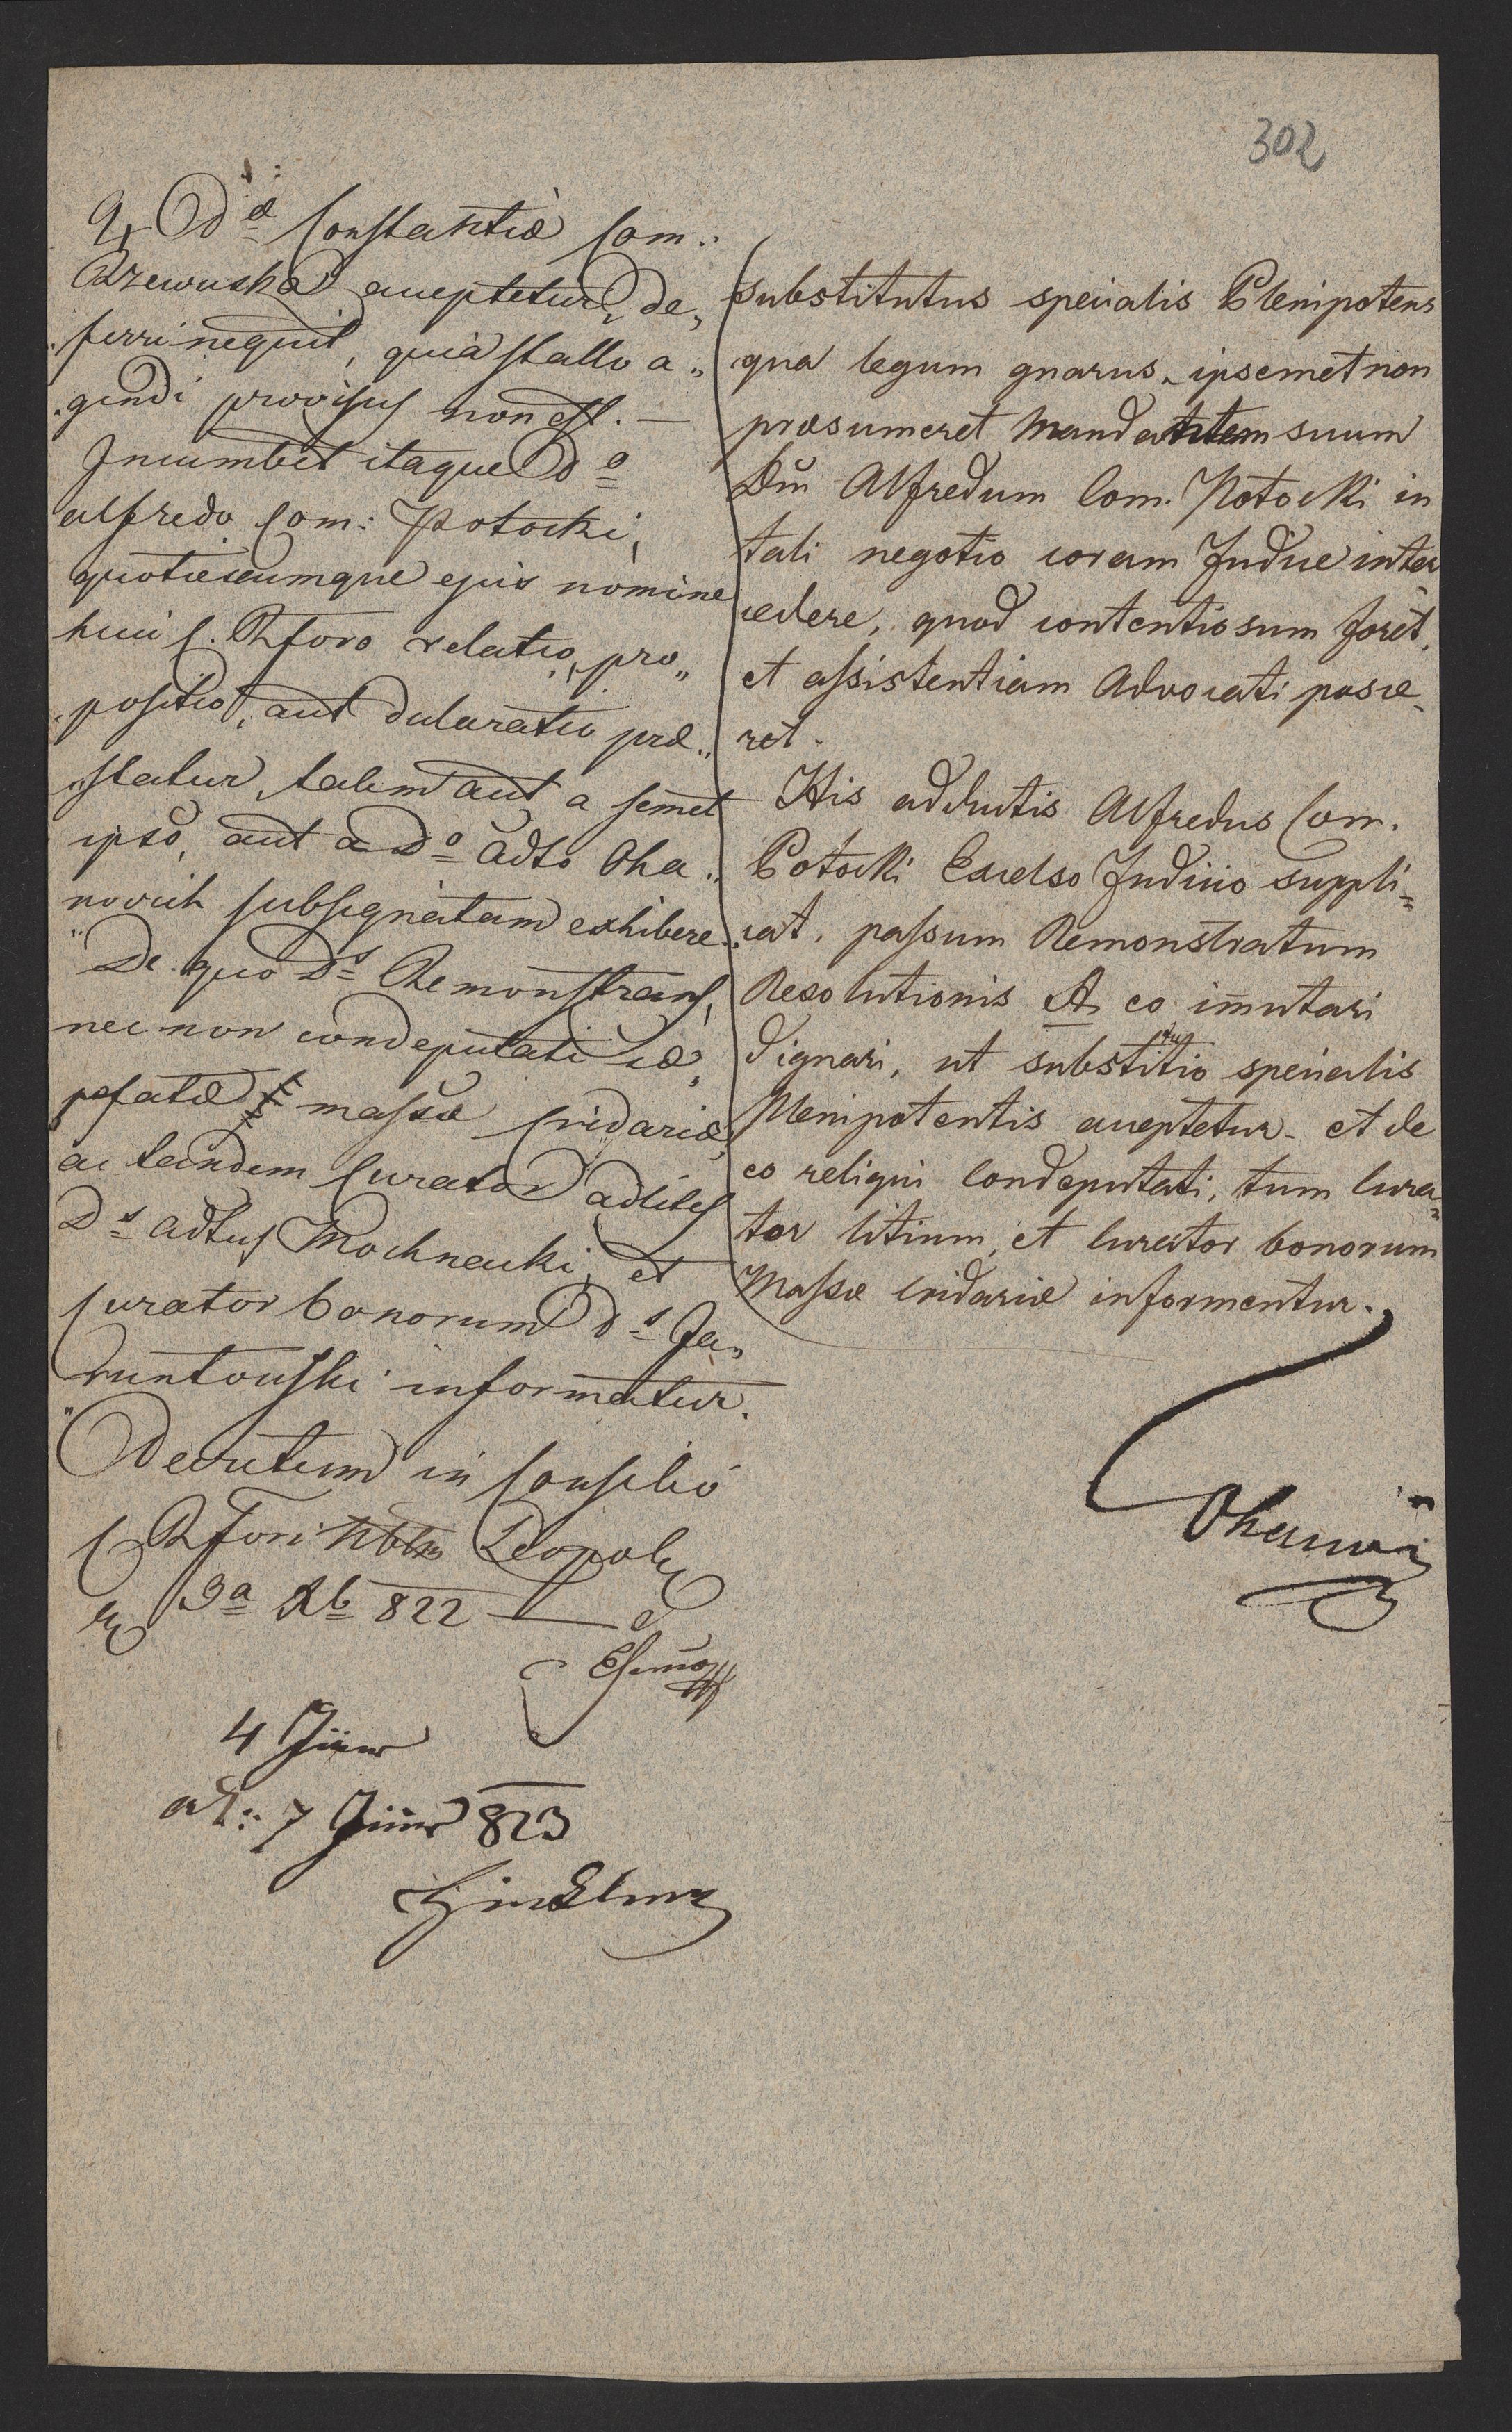 302
Dæ Constantiæ Com:
Rzewuska acceptetur, de„
ferri nequit, quia stallo a„
gendi provisus non est. —
Incumbet itaque Do
Alfredo Com: Potocki,
quotiescumque ejus nomine
huic C. R. foro relatio, pro„
positio, aut declaratio præ„
statur, talem aut a semet
ipso, aut a Do Adto Oha„
novich subsignatam exhibere.
De quo Ds Remonstrans,
nec non condeputati
massæ cridariæ,
ac tandem Curator ad lites
Ds Adtus Mochnacki, et
Curator bonorum Ds Ja„
runtowski informatur.
Decretum in Consilio
C R Fori Nobm Leopol
9a Xb 822
4 Jänner
ad: 7 Jänner 823
substitutus specialis Plenipotens
qua legum gnarus, ipsemet non
præsumeret Mandantem suum
Dm̄ Alfredum Com. Potocki in
tali negotio coram Judice inter
cedere, quod contentiosum foret,
et assistentiam Advocati posce„
ret.
His adductis Alfredus Com.
Potocki Excelso Judicio suppli=
cat, passum Remonstratum
Resolutionis A, eo im̄utari
dignari, ut substitutio specialis
Plenipotentis acceptetur, et de
eo reliqui Condeputati, tum Cura=
tor litium, et Curator bonorum
Massæ cridariæ informentur.